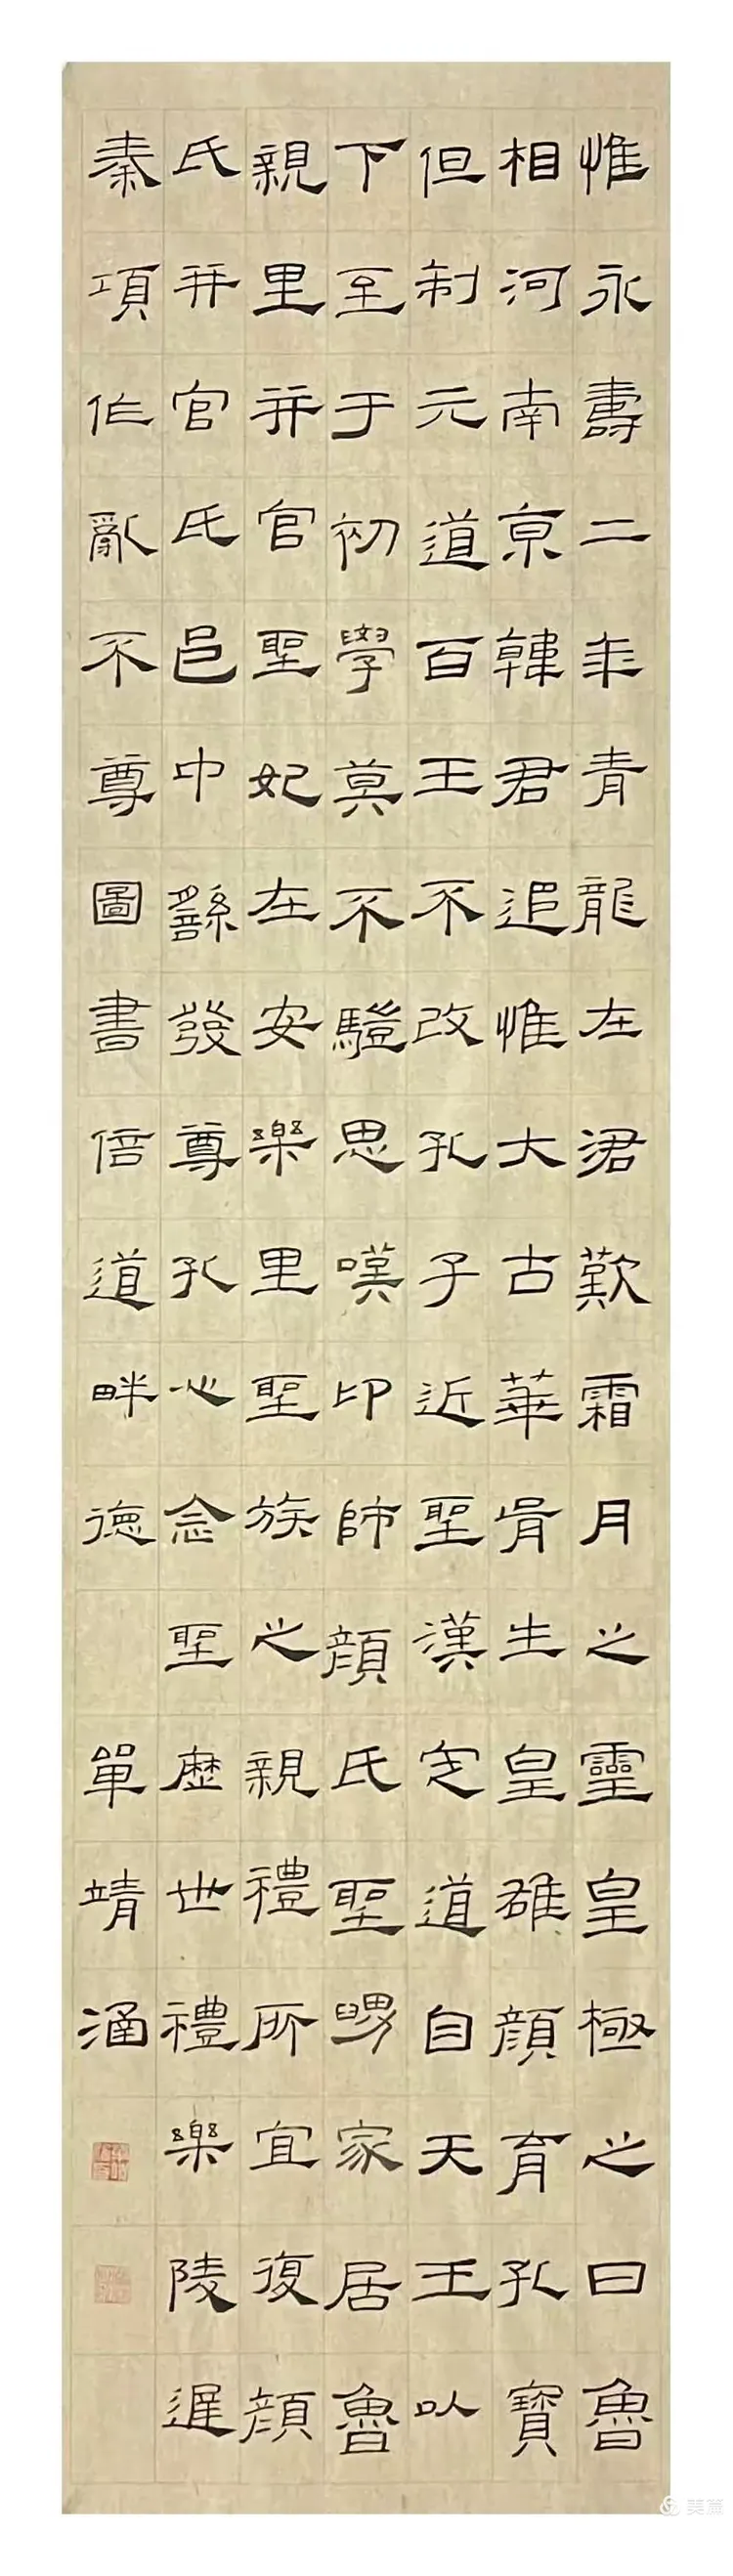 惟永壽二年青龍在涒歎霜月之靈皇極之日魯
相河南京韓君追惟大古華胥生皇雄顏育孔寶
但制元道百王不改孔子近聖漢定道自天王以
下至于初學莫不驥思嘆卬師顏氏聖舅家居魯
親里并官聖妃在安樂里聖族之親禮所宜復顏
氏并官氏邑中繇發尊孔心念聖歷世禮樂陵遲
秦項作亂不尊圖書倍道畔德
單靖涵
美篇